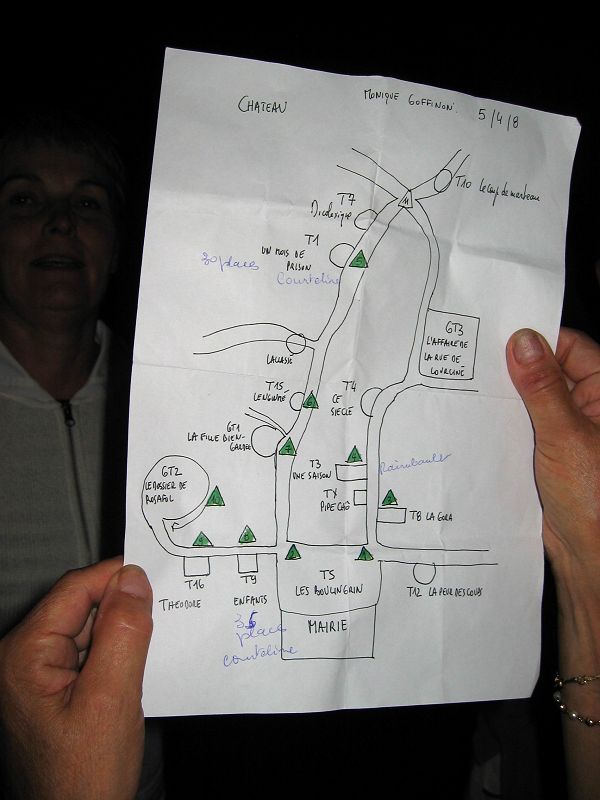 CHATEAU
MONIQUE GOFFINON.
5/4/8
T10 Le coup de marteau
T7
T1
UN MOIS DE
PRISON
30 places
Courteline
GT3
L'AFFAIRE DE
LA RUE DE
LOURCINE
T15
T4
CE
SIECLE
GT1
LA FILLE BIEN
GARDEE
T3
UNE SAISON
Raimbault
GT2
LE DOSSIER DE
ROSAFOL
TX
PIPE CHÔ
T8 LA GORA
T16
THEODORE
T9
ENFANTS
T5
LES BOULINGRIN
T12 LA PEUR DES COUPS
MAIRIE
35
place
courteline